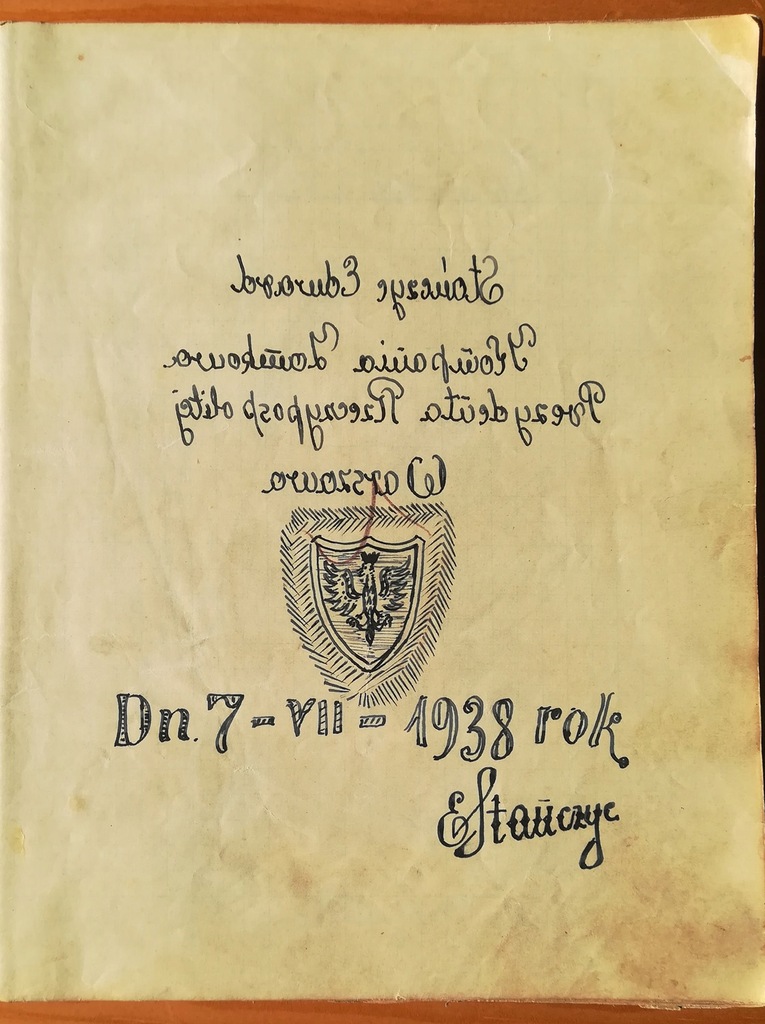 Stańczyc Edward
Kompania Zamkowa
Prezydenta Rzeczypospolitej
Warszawa
Dn. 7 - VII - 1938 rok
EStańczyc